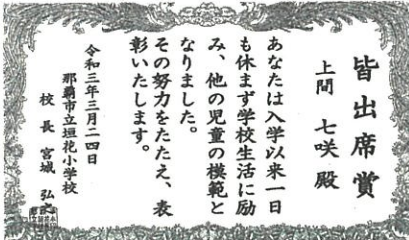 皆出席賞
上間 七咲 殿
あなたは入学以来一日
も休まず学校生活に励
み、他の児童の模範と
なりました。
その努力をたたえ、表
彰いたします。
令和三年三月二四日
那覇市立垣花小学校
校長 宮城 弘